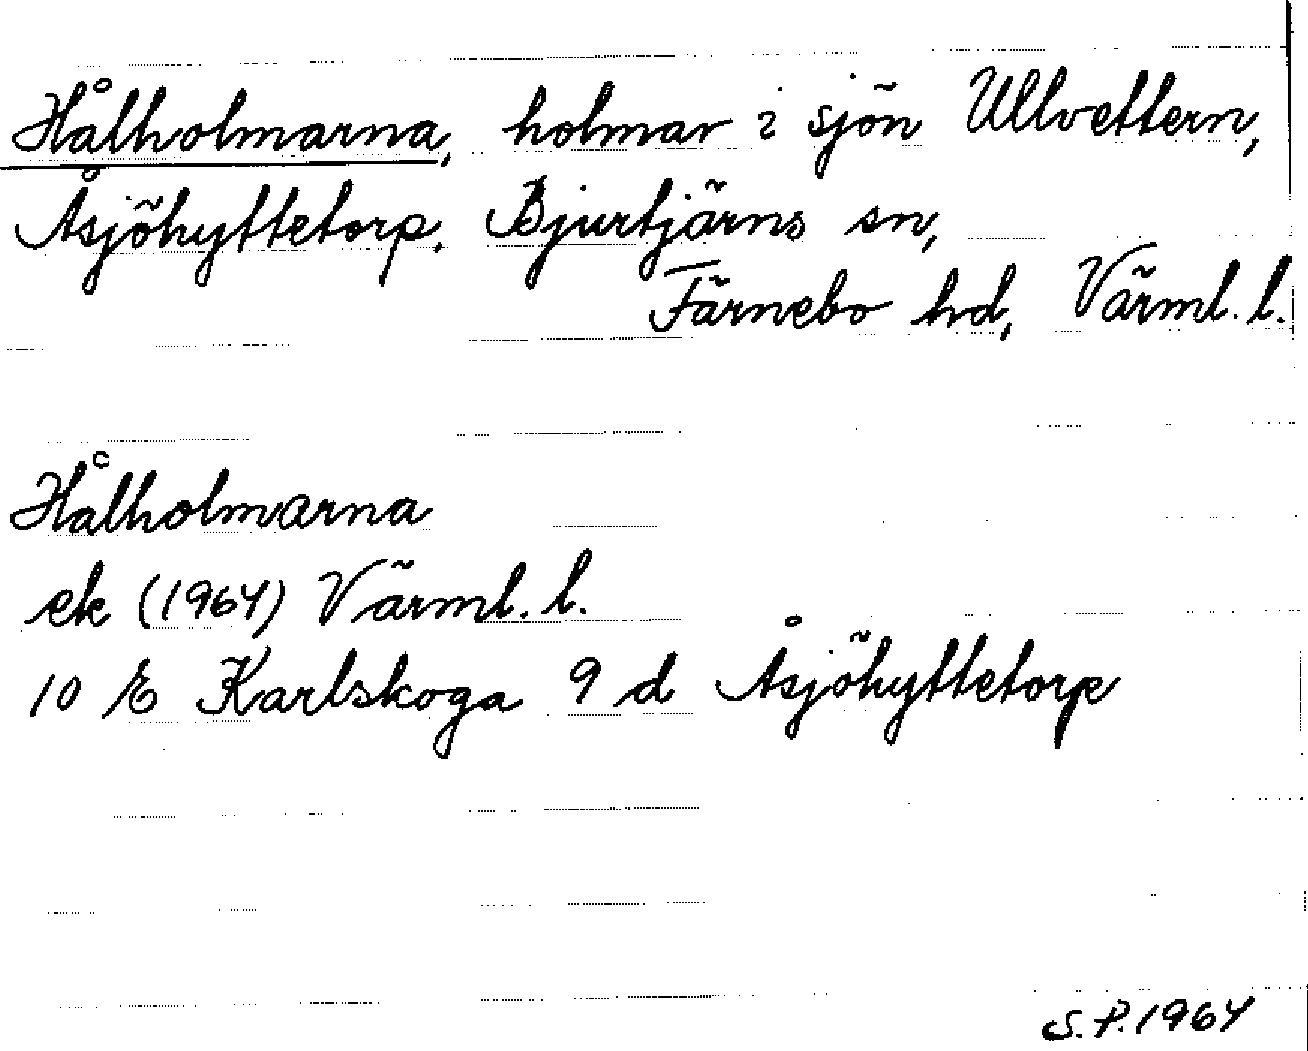 Hålholmarna, holmar i sjön Ullvettern,
Åsjöhyttetorp, Bjurtjärns sn,
Färnebo hd, Värml. l.
Hålholmarna
ek (1964) Värml. l.
10 E Karlskoga 9 d Åsjöhyttetorp
S.P. 1964